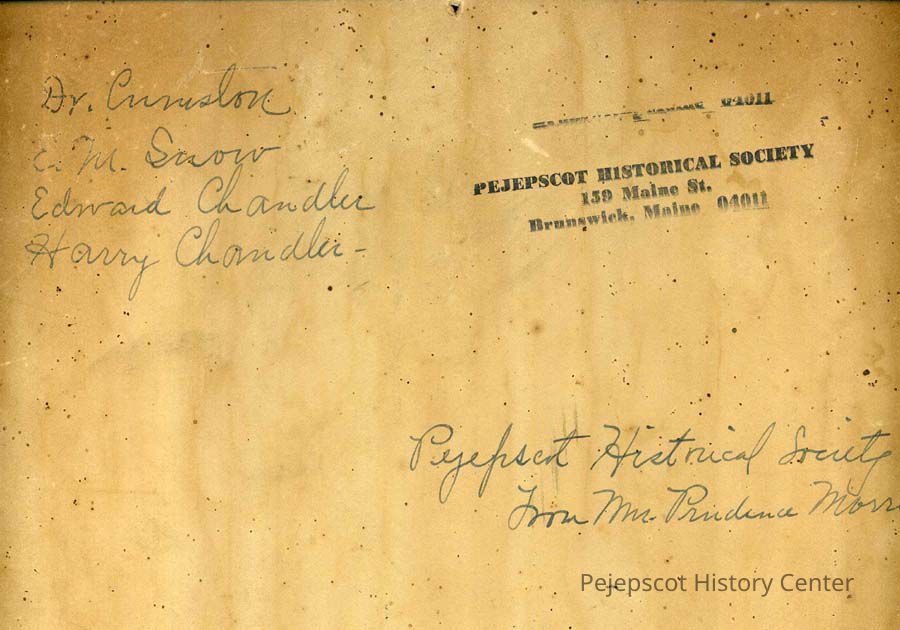 Dr. Cumston
C. M. Snow
Edward Chandler
Harry Chandler -
04011
PEJEPSCOT HISTORICAL SOCIETY
159 Maine St.
Brunswick, Maine 04011
Pejepscot Historical Society
From Mrs. Prudence
Pejepscot History Center